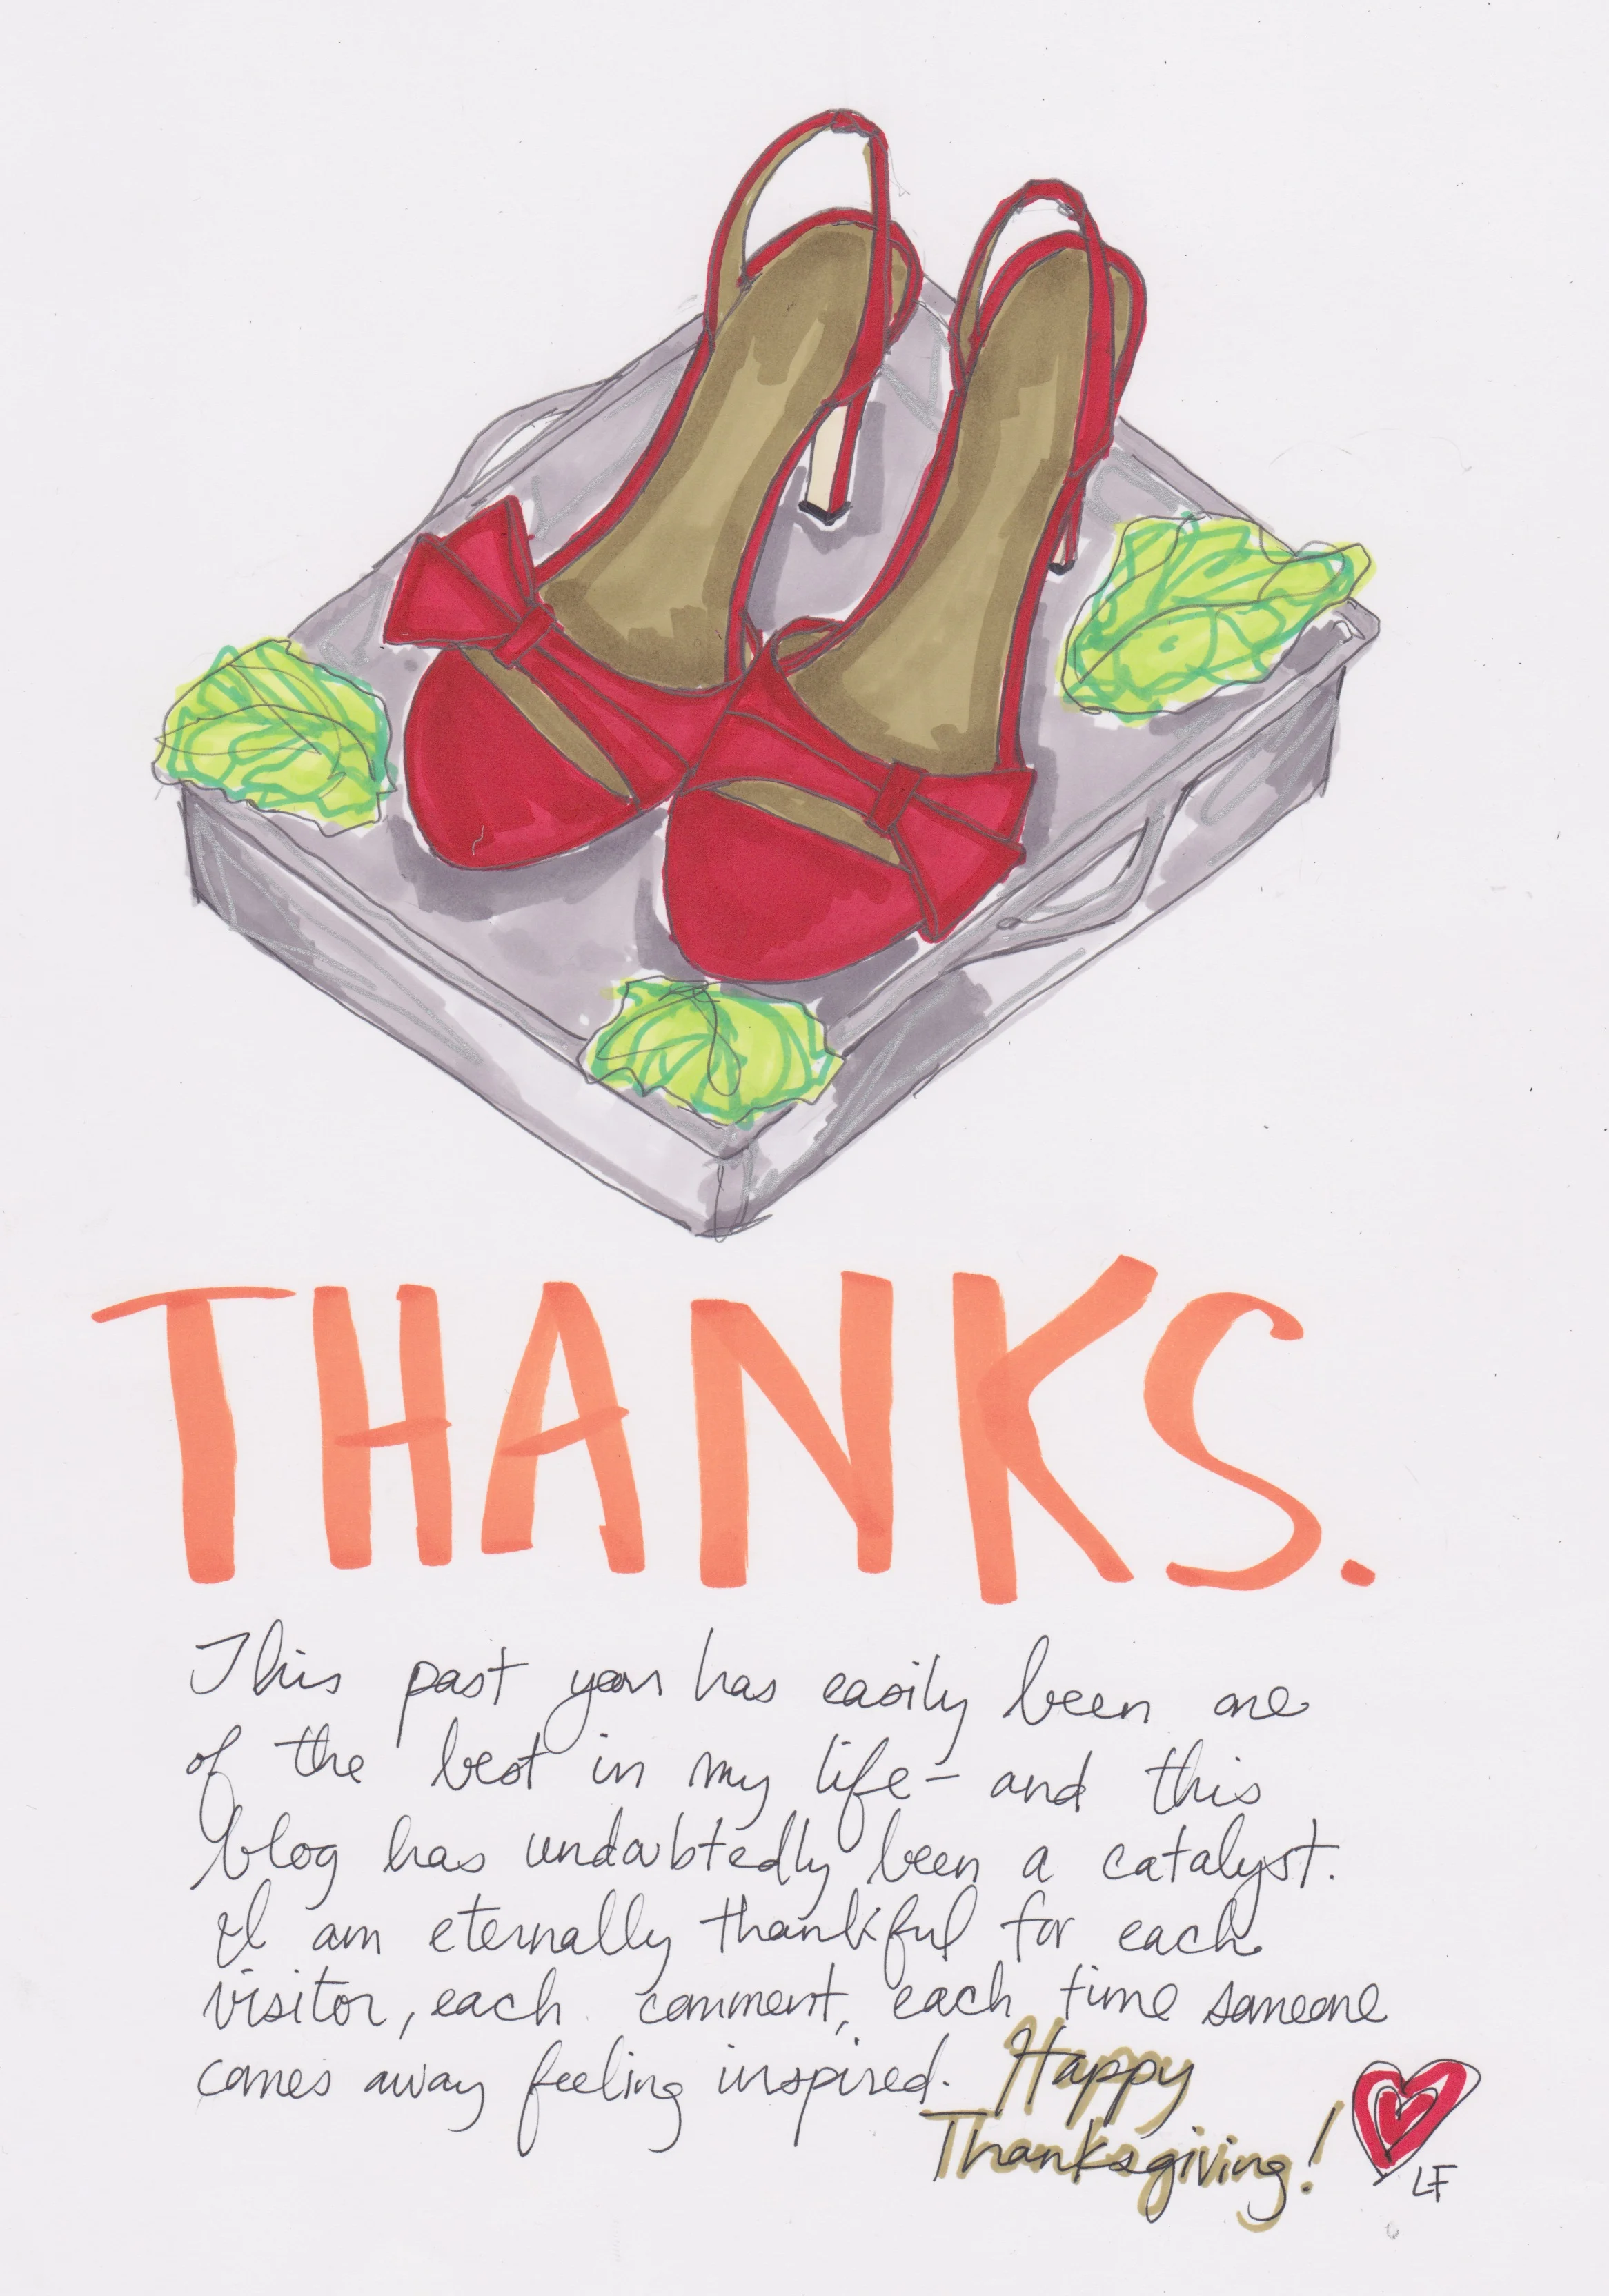 THANKS.
This past year has easily been one
of the best in my life - and this
blog has undoubtedly been a catalyst.
I am eternally thankful for each
visitor, each comment, each time someone
comes away feeling inspired. Happy
Thanksgiving!
LF